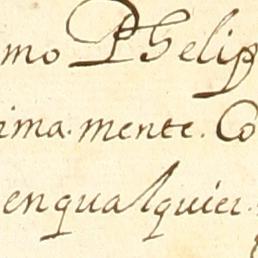 mo Phelip
ima.mente. Co
enqualquier.